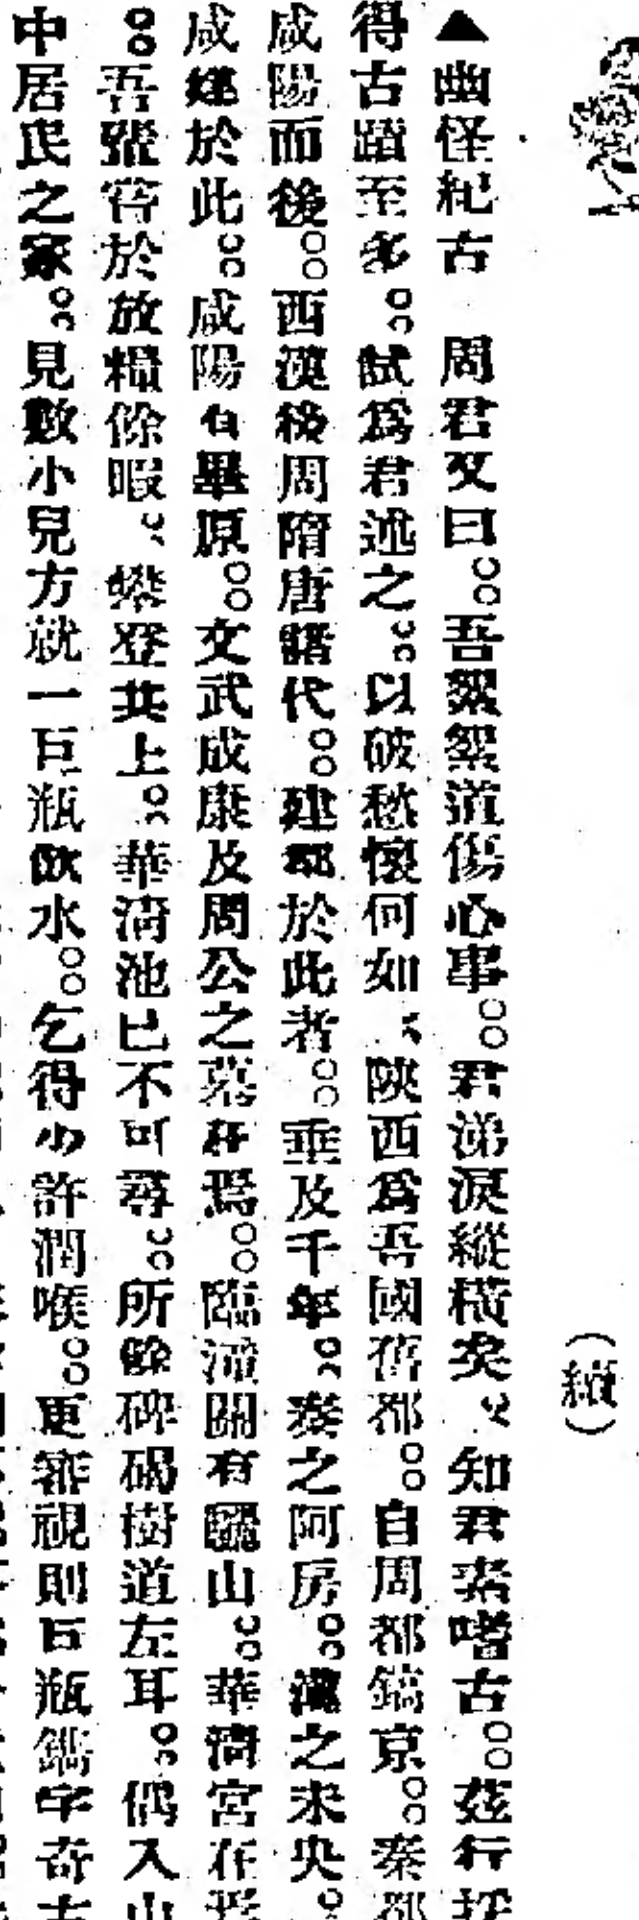 （續）
▲幽怪紀古　周君又曰。吾絮絮道傷心事。君涕淚縱橫矣。知君素嗜古。茲行採
得古蹟至多。試爲君述之。以破愁懷何如。陝西爲吾國舊都。自周都鎬京。秦都
咸陽而後。西漢後周隋唐諸代。建都於此者。垂及千年。秦之阿房。漢之未央。
咸建於此。咸陽有畢原。文武成康及周公之墓在焉。臨潼關有驪山。華淸宮在
吾張君於放糧餘暇。攀登其上。華淸池已不可尋。所餘碑碣樹道左耳。偶入山
中居民之家。見數小兒方就一巨瓶飲水。乞得少許潤喉。更審視則巨瓶鐫字奇古